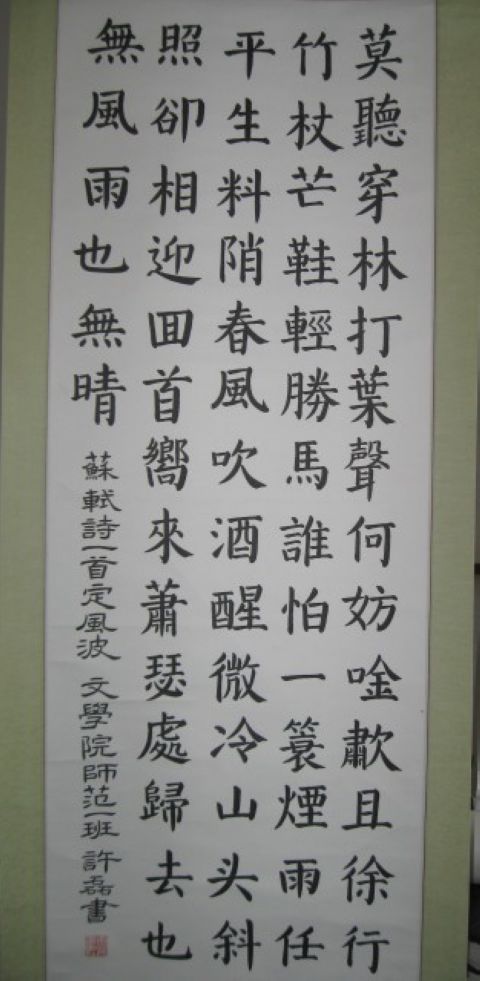 莫聽穿林打葉聲何妨唫歗且徐行
竹杖芒鞋輕勝馬誰怕一簑煙雨任
平生料陗春風吹酒醒微冷山头斜
照卻相迎囬首嚮來蕭瑟處歸去也
無風雨也無晴
蘇軾詩一首定風波 文學院師范一班 許磊書